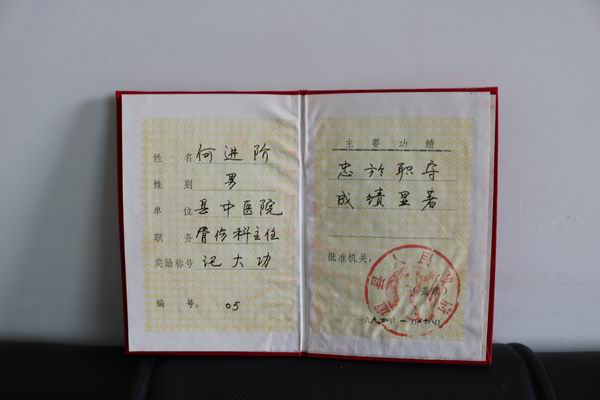 姓名 何进阶
性别 男
单位 县中医院
职务 骨伤科主任
奖励称号 记大功
编号：05
主要功绩
忠于职守
成绩显著
批准机关：